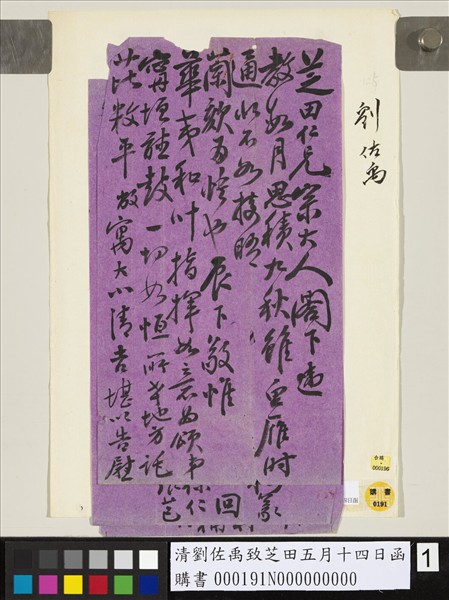 劉佐禹
芝田仁兄宗大人閣下違
教如月思積九秋雖魚雁時
通 不如接晤
蘭 為悵也辰下敬惟
華夷和叶指揮如意為頌弟
甯垣 鼓一切如恒所幸地方託
敉平敝寓大小清吉堪以告慰
回
購書
000196
購書
0191
清劉佐禹致芝田五月十四日函
購書 000191N000000000
1